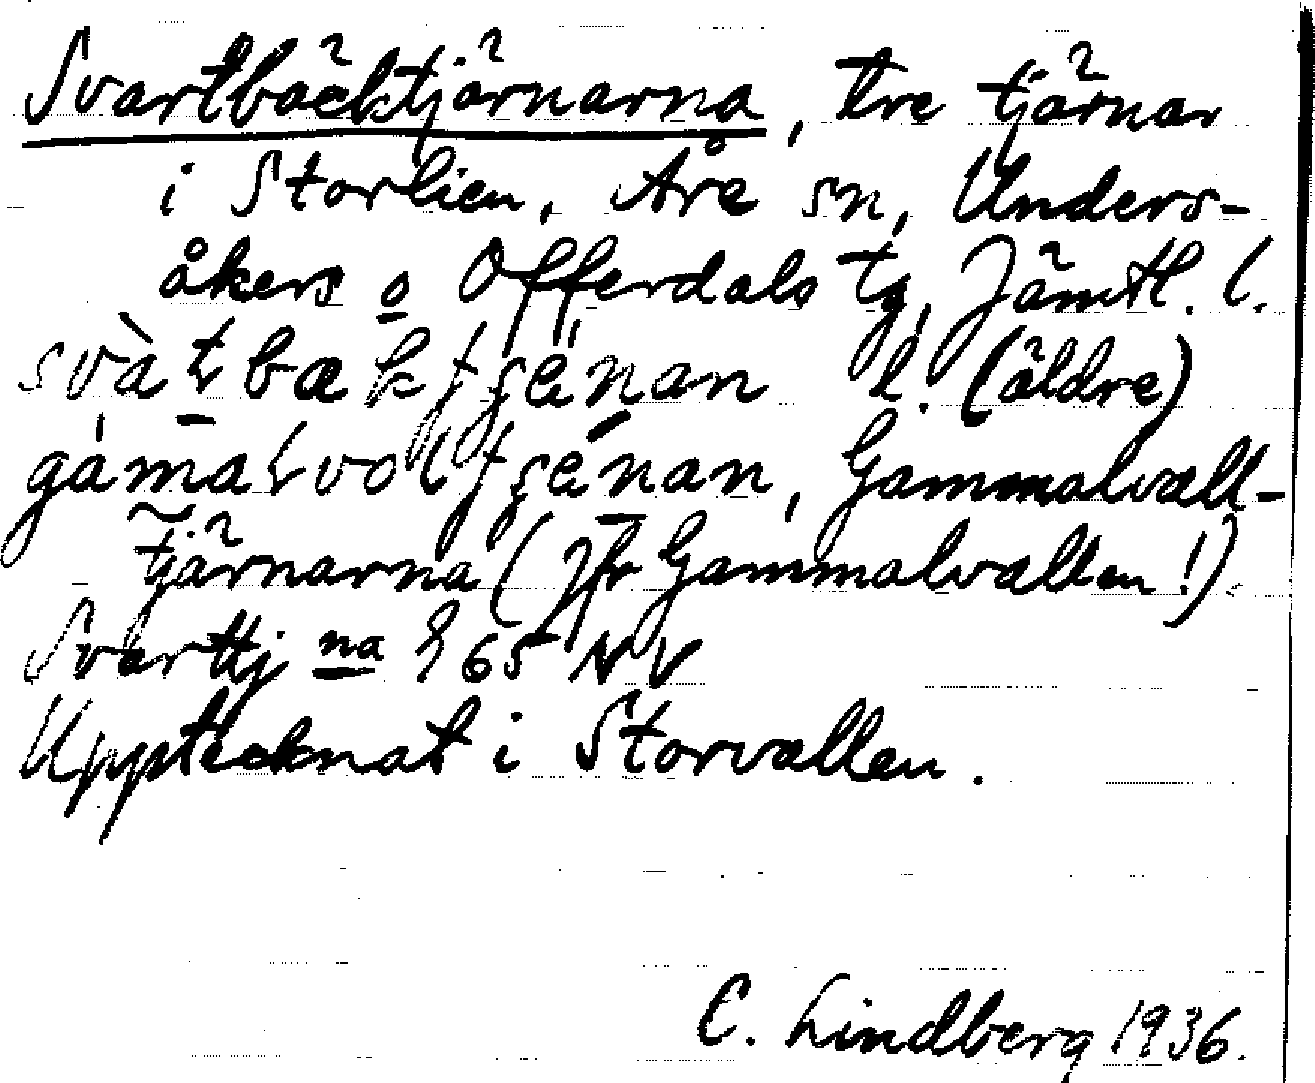 Svartbäcktjärnarna, tre tjärnar
i Storlien, Åre sn, Unders-
åkers o Offerdals tg, Jämtl. l.
l. (äldre)
Gammalvall-
tjärnarna (Jfr Gammalvallen!)
Svarttj na 65 NV
Upptecknat i Storvallen.
C. Lindberg 1936.